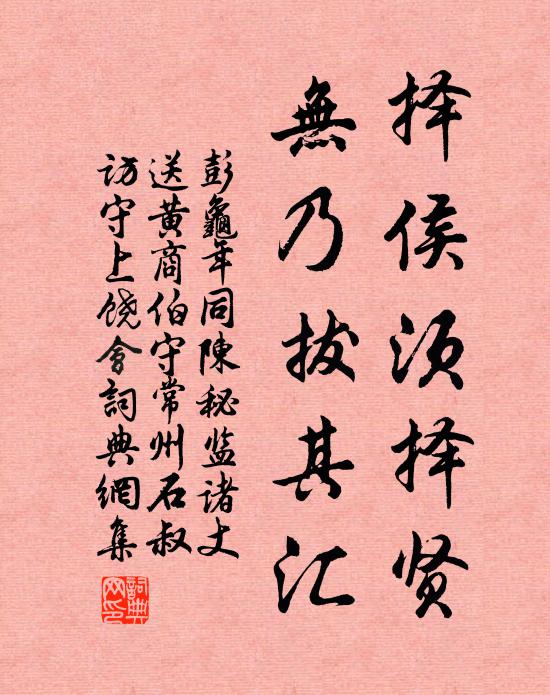 择侯须择贤
無乃拔其汇
彭龜年同陳秘监諸丈
送黄商伯守常州石叔
访守上饶會詞典網集
詞典網印